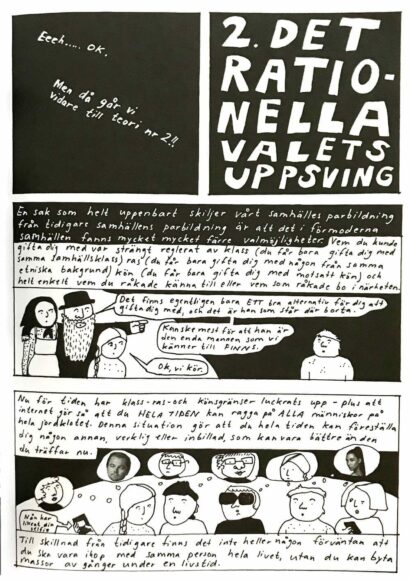 Eeeh..... OK.
Men då går vi
vidare till teori nr 2!!
2. DET
RATIO-
NELLA
VALETS
UPPSVING
En sak som helt uppenbart skiljer vårt samhälles parbildning
från tidigare samhällens parbildning är att det i förmoderna
samhällen fanns mycket mycket färre valmöjligheter. Vem du kunde
gifta dig med var strängt reglerat av klass (du får bara gifta dig med
samma samhällsklass) ras (du får bara gifta dig med någon från samma
etniska bakgrund) kön (du får bara gifta dig med motsatt kön) och
helt enkelt vem du råkade känna till eller vem som råkade bo i närheten.
Det finns egentligen bara ETT bra alternativ för dig att
gifta dig med, och det är han som står där borta.
Kanske mest för att han är
den enda mannen som vi
känner till FINNS.
Ok, vi kör.
Nu för tiden har klass-ras-och könsgränser luckrats upp - plus att
internet gör så att du HELA TIDEN kan ragga på ALLA människor på
hela jordklotet. Denna situation gör att du hela tiden kan föreställa
dig någon annan, verklig eller inbillad, som kan vara bättre än den
du träffar nu.
Nån har
likeat din
selfie
Till skillnad från tidigare finns det inte heller någon förväntan att
du ska vara ihop med samma person hela livet, utan du kan byta
massor av gånger under en livstid.